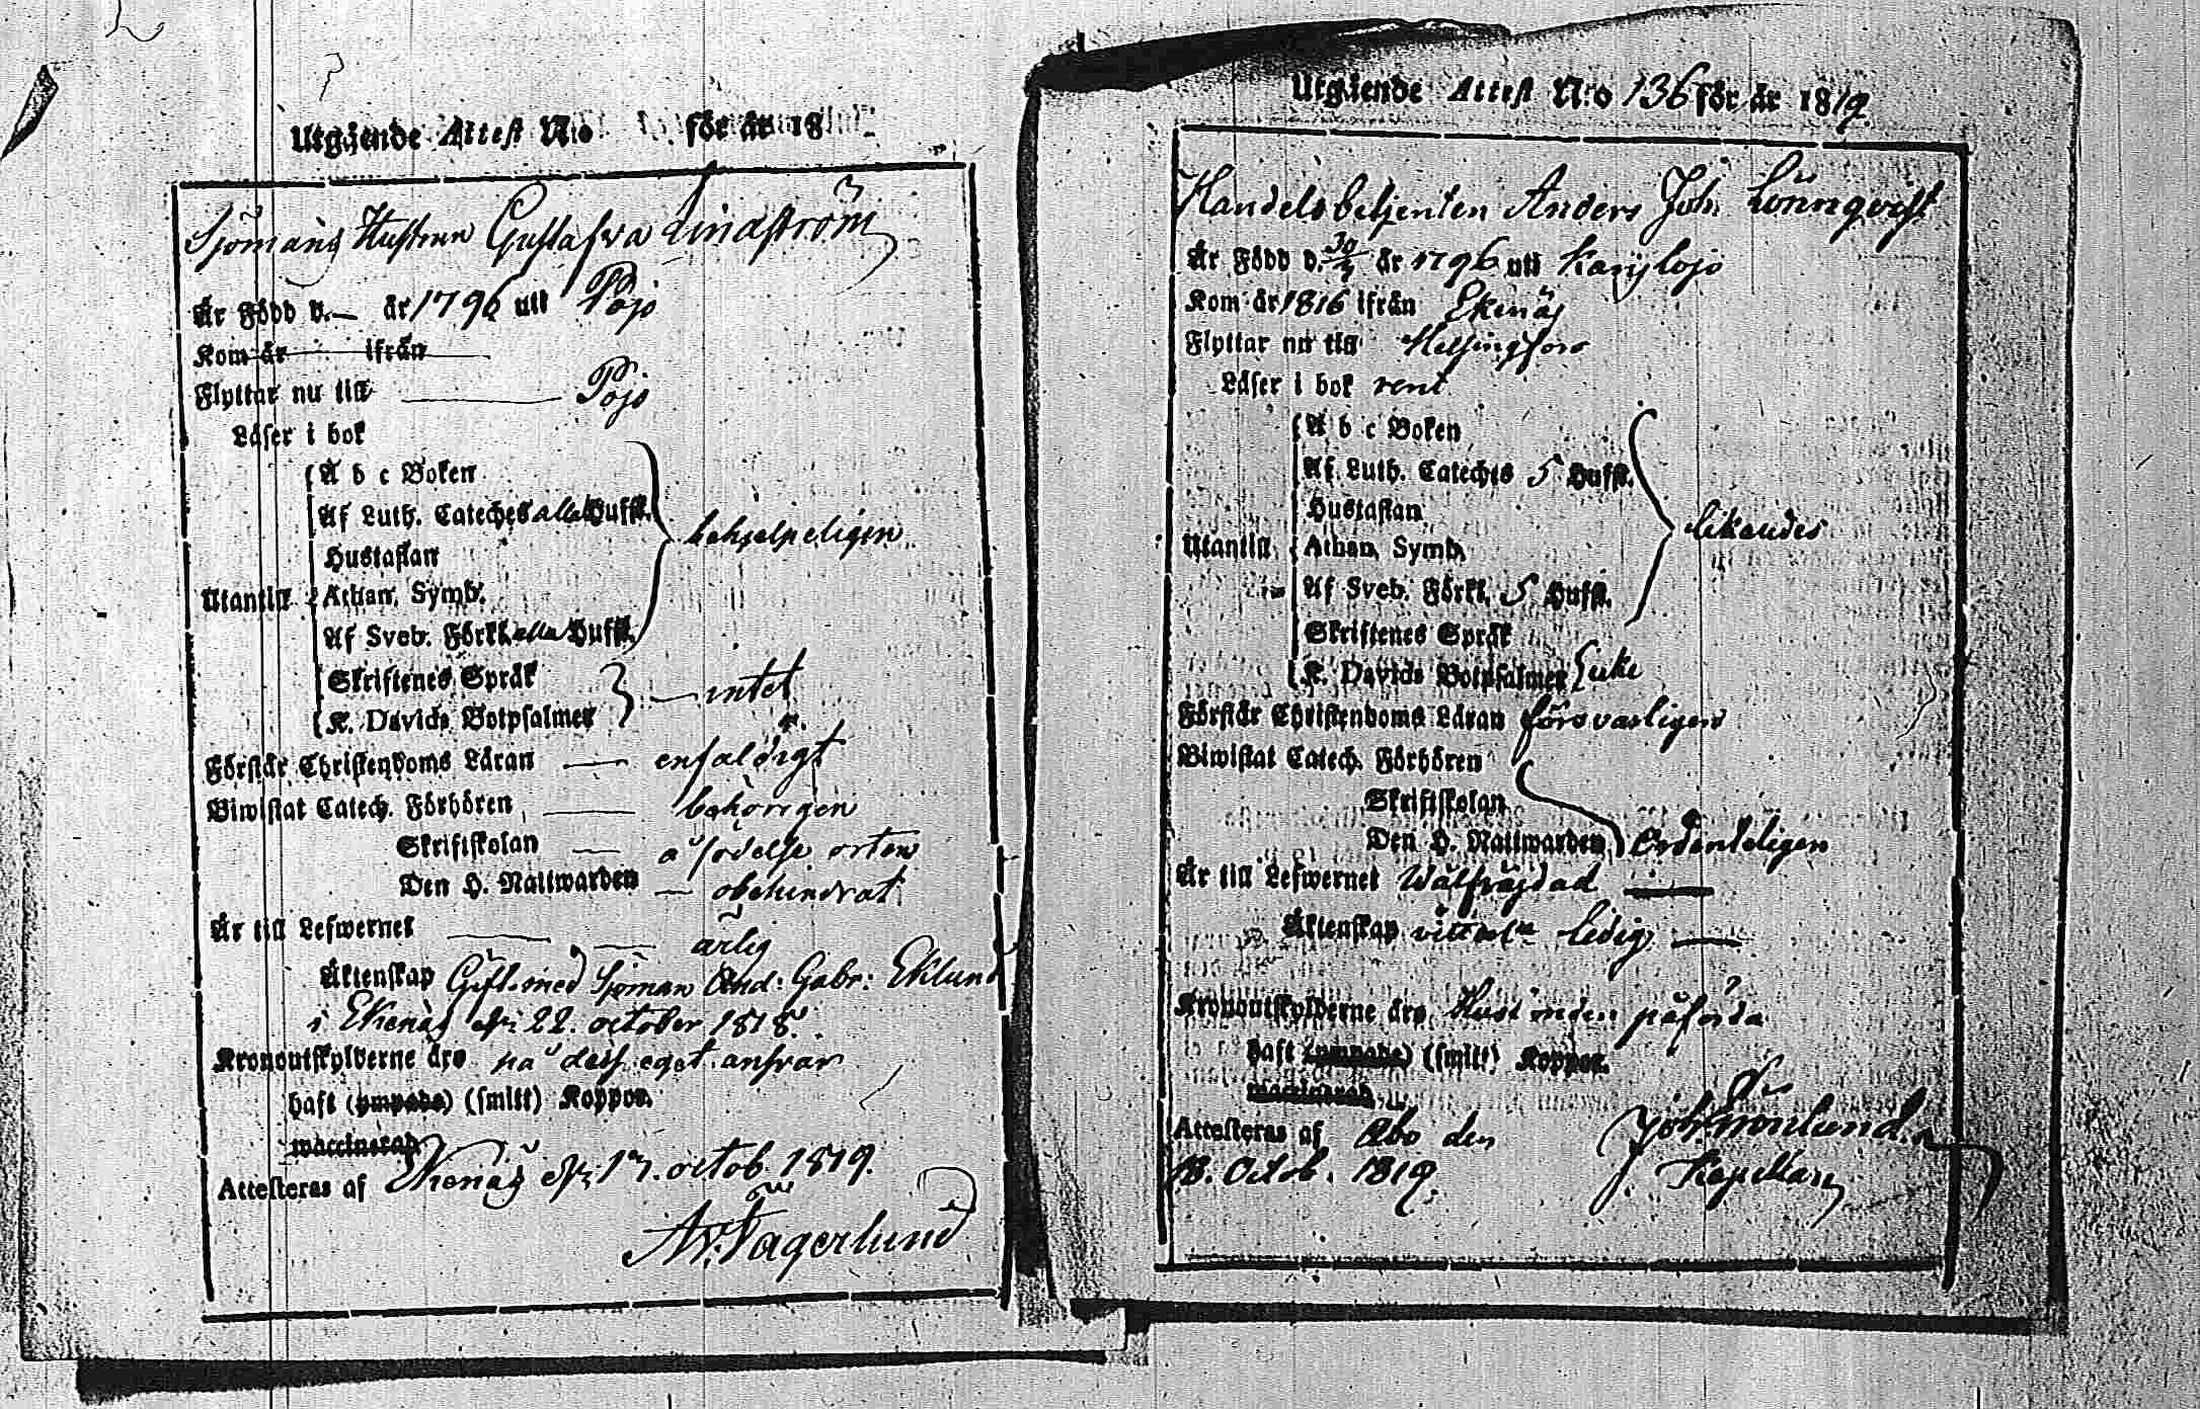 Utgående Attest N:o för år 18
Sjömans Hustrun Gustafva Lindström
Är Född d. — år 1796 uti Pojo
Kom år ifrån
Flyttar nu till Pojo
Läser i bok
A b c Boken
Af Luth. Cateches alla Hufst.
Hustaflan
behjelpeligen
Utantill
Athan. Symb.
Af Sveb. Förkl. alla Hufst.
Skriftenes Språk
K. Davids Botpsalmer
intet
Förstår Christendoms Läran — enfaldigt
Biwistat Catech. Förhören — behörigen
Skriftskolan — å födelse orten
Den H. Nattwarden — obehindrat
Är till Lefwernet — ärlig
Äktenskap Gift med Sjöman And: Gabr: Eklund
i Ekenäs d. 22. october 1818.
Kronoutskylderne äro på dess eget ansvar
haft (ympade) (smitt) Koppor.
waccinerad
Attesteras af Ekenäs d. 17. octob. 1819.
Fagerlund
Utgående Attest N:o 136 för år 1819
Handelsbetjenten Anders Joh. Lönnqvist
Är Född d. år 1796 uti Karislojo
Kom år 1816 ifrån Ekenäs
Flyttar nu till Helsingfors
Läser i bok rent
A b c Boken
Af Luth. Cateches 5 Hufst.
Hustaflan
likaledes
Utantill
Athan. Symb.
Af Sveb. Förkl. 5 Hufst.
Skriftenes Språk
K. Davids Botpsalmer
Förstår Christendoms Läran försvarligen
Biwistat Catech. Förhören
Skriftskolan
Den H. Nattwarden Ordenteligen
Är till Lefwernet Wälfrägdad
Äktenskap ledig
Kronoutskylderne äro påförda
haft (ympade) (smitt) Koppor.
waccinerad
Attesteras af Åbo den
18. Octob. 1819.
Joh. Grönlund
Kapellan